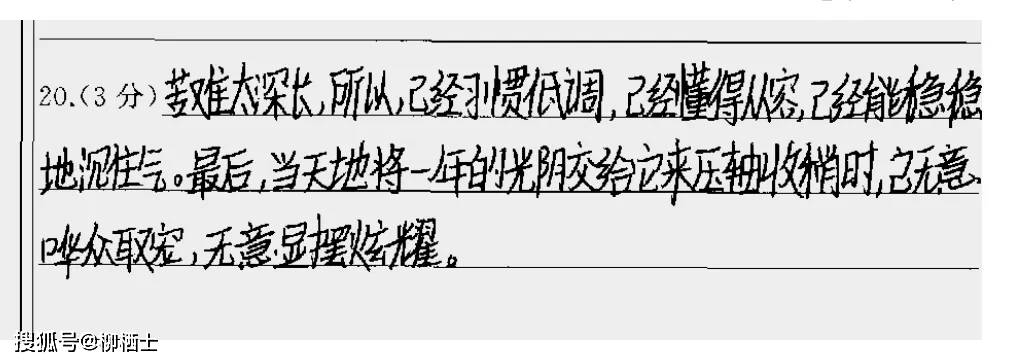 20.(3分)苦难太深长,所以,已经习惯低调,已经懂得从容,已经能稳稳
地沉住气。最后,当天地将一年的光阴交给它来压轴收梢时,已无意
哗众取宠,无意显摆炫耀。
搜狐号@柳栖士